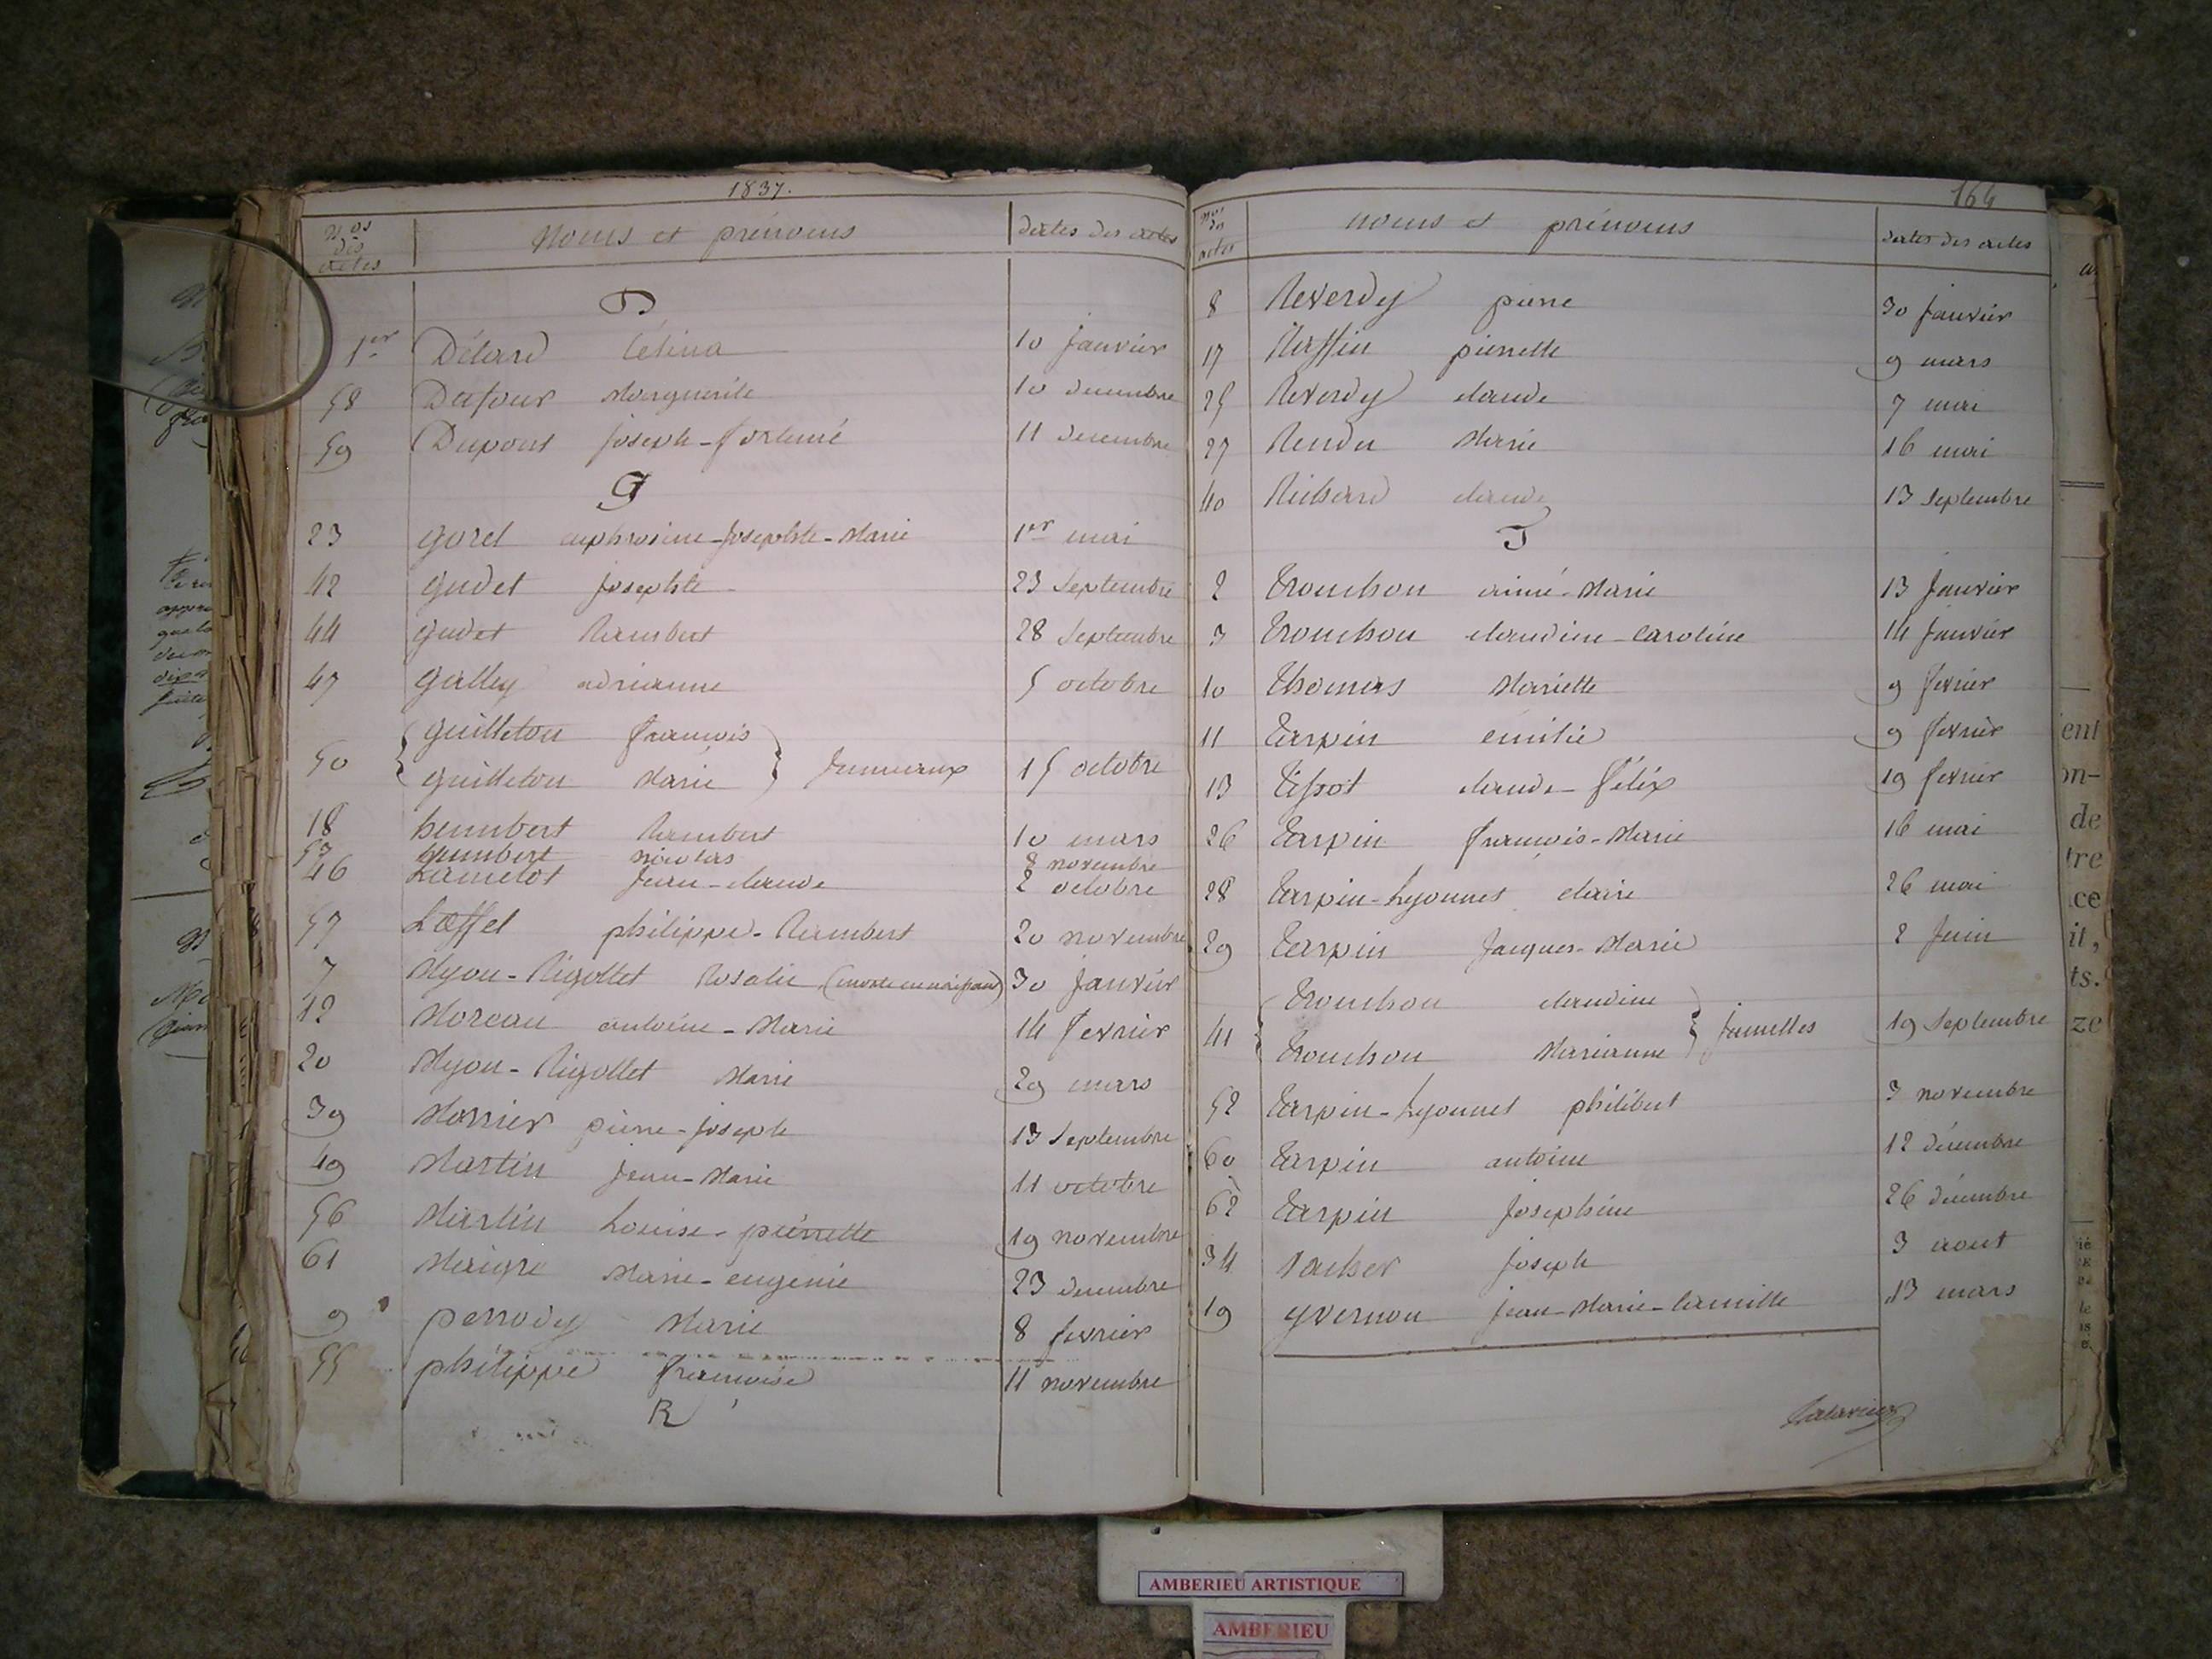 1837.
Nos des actes noms et prénoms dates des actes
D
1er Délard Célina 10 janvier
58 Dufour Marguerite 10 decembre
59 Dupont joseph-fortuné 11 decembre
G
23 goret euphrosine-josephte-Marie 1er mai
42 gudet josephte 23 Septembre
44 gudet Rambert 28 Septembre
47 galley adrianne 5 octobre
guilleton françois
50 jumeaux 15 octobre
guilleton Marie
18 humbert Rambert 10 mars
53 humbert nicolas 8 novembre
46 Lamelot jean-claude 2 octobre
57 Lœffel philippe-Rambert 20 novembre
7 Myon-Rigollet Rosalie 30 janvier
12 Moreau antoine-Marie 14 fevrier
20 Myon-Rigollet Marie 29 mars
39 Morrier pierre-joseph 13 Septembre
49 Martin jean-Marie 11 octobre
56 Martin Louise-pierrette 19 novembre
61 Maigre Marie-eugenie 23 decembre
9 perrody Marie 8 fevrier
55 philippe françoise 11 novembre
R
164
Nos des actes noms et prénoms dates des actes
8 Reverdy pierre 30 janvier
17 Ruffin pierrette 9 mars
25 Reverdy claude 7 mai
27 Rendu Marie 16 mai
40 Richard claude 13 Septembre
T
2 Trouchon aimé-Marie 13 janvier
3 Trouchon claudine-Caroline 14 janvier
10 Thomas Mariette 9 fevrier
11 Tarpin emilie 9 fevrier
13 Tissot claude-félix 19 fevrier
26 Tarpin françois-Marie 16 mai
28 Tarpin-Lyonnet claire 26 mai
29 Tarpin Jacques-Marie 2 juin
Trouchon claudine
41 jumelles 19 Septembre
Trouchon Marianne
52 Tarpin-Lyonnet philibert 3 novembre
60 Tarpin antoine 12 décembre
62 Tarpin josephine 26 décembre
34 Vacher joseph 3 aout
19 yvernon jean-Marie-Camille 13 mars
ent
on-
de
tre
ce
it,
ts.
ze
AMBERIEU ARTISTIQUE
AMBERIEU